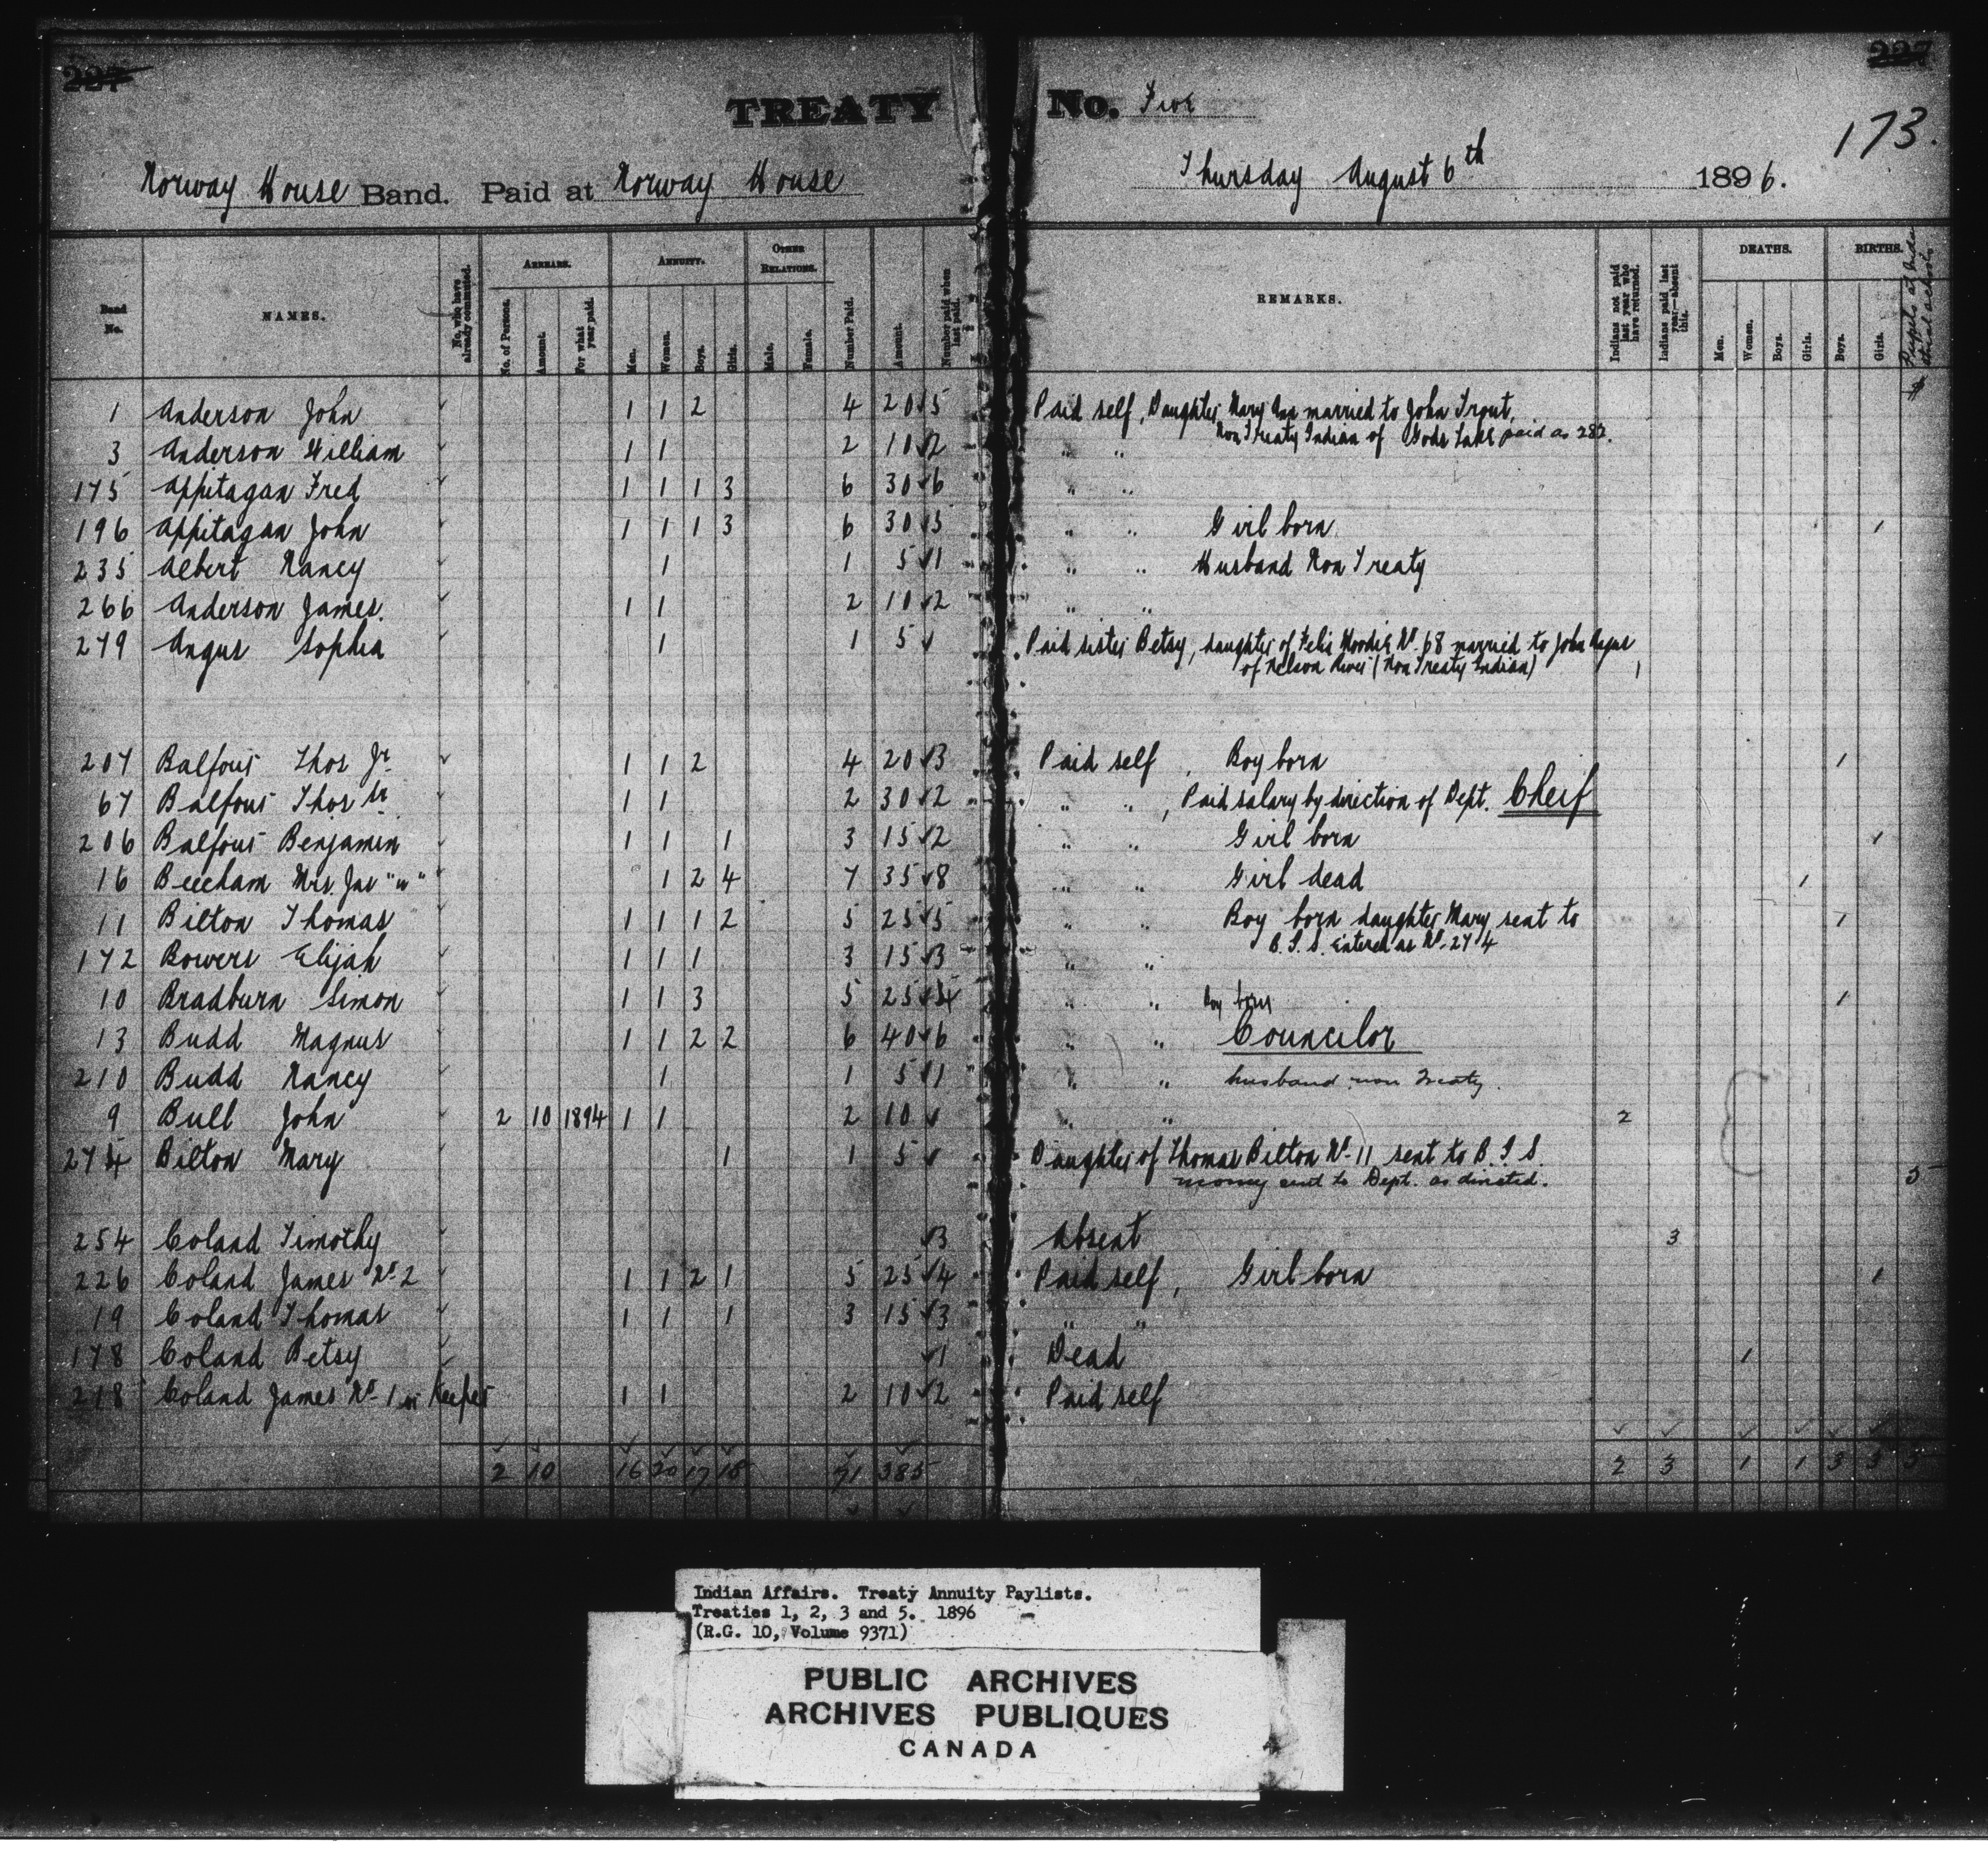 227
227
TREATY No. Five
173.
Norway House Band. Paid at Norway House Thursday August 6th 1896.
Band No. NAMES. No. who have already commuted. ARREARS. No. of Persons. Amount. For what year paid. ANNUITY. Men. Women. Boys. Girls. OTHER RELATIONS. Male. Female. Number Paid. Amount. Number paid when last paid. REMARKS. Indians not paid last year who have returned. Indians paid last year—absent this. DEATHS. Men. Women. Boys. Girls. BIRTHS. Boys. Girls. Pupils at Industrial schools
$
1 Anderson John 1 1 2 4 20 5 Paid self, Daughter Mary Ann married to John Trout,
Non Treaty Indian of Gods Lake paid as 282.
3 Anderson William 1 1 2 10 2 " "
175 Appitagan Fred 1 1 1 3 6 30 6 " "
196 Appitagan John 1 1 1 3 6 30 5 " " Girl born 1
235 Albert Nancy 1 1 5 1 " " Husband Non Treaty
266 Anderson James. 1 1 2 10 2 " "
279 Angus Sophia 1 1 5 Paid sister Betsy, daughter of Felix Moodie No. 68 married to John Angus
of Nelson River (Non Treaty Indian) 1
207 Balfour Thos Jr 1 1 2 4 20 3 Paid self, Boy born 1
67 Balfour Thos Sr 1 1 2 30 2 " ", Paid salary by direction of Dept. Cheif
206 Balfour Benjamin 1 1 1 3 15 2 " " Girl born 1
16 Beecham Mrs. Jas "w" 1 2 4 7 35 8 " " Girl dead 1
11 Bilton Thomas 1 1 1 2 5 25 5 " " Boy born daughter Mary sent to 1
B.I.S. Entered as No. 274
172 Bowers Elijah 1 1 1 3 15 3 " "
10 Bradburn Simon 1 1 3 5 25 4 " " Boy born 1
13 Budd Magnus 1 1 2 2 6 40 6 " " Councilor
210 Budd Nancy 1 1 5 1 " " husband non Treaty.
9 Bull John 2 10 1894 1 1 2 10 " " 2
274 Bilton Mary 1 1 5 Daughter of Thomas Bilton No. 11 sent to B.I.S.
money sent to Dept. as directed. 5
254 Coland Timothy 3 Absent 3
226 Coland James No. 2 1 1 2 1 5 25 4 Paid self, Girl born 1
19 Coland Thomas 1 1 1 3 15 3 " "
178 Coland Betsy 1 Dead 1
218 Coland James No. 1 or Keeper 1 1 2 10 2 Paid self
2 10 16 20 17 18 71 385 2 3 1 1 3 3 5
Indian Affairs. Treaty Annuity Paylists.
Treaties 1, 2, 3 and 5. 1896
(R.G. 10, Volume 9371)
PUBLIC ARCHIVES
ARCHIVES PUBLIQUES
CANADA